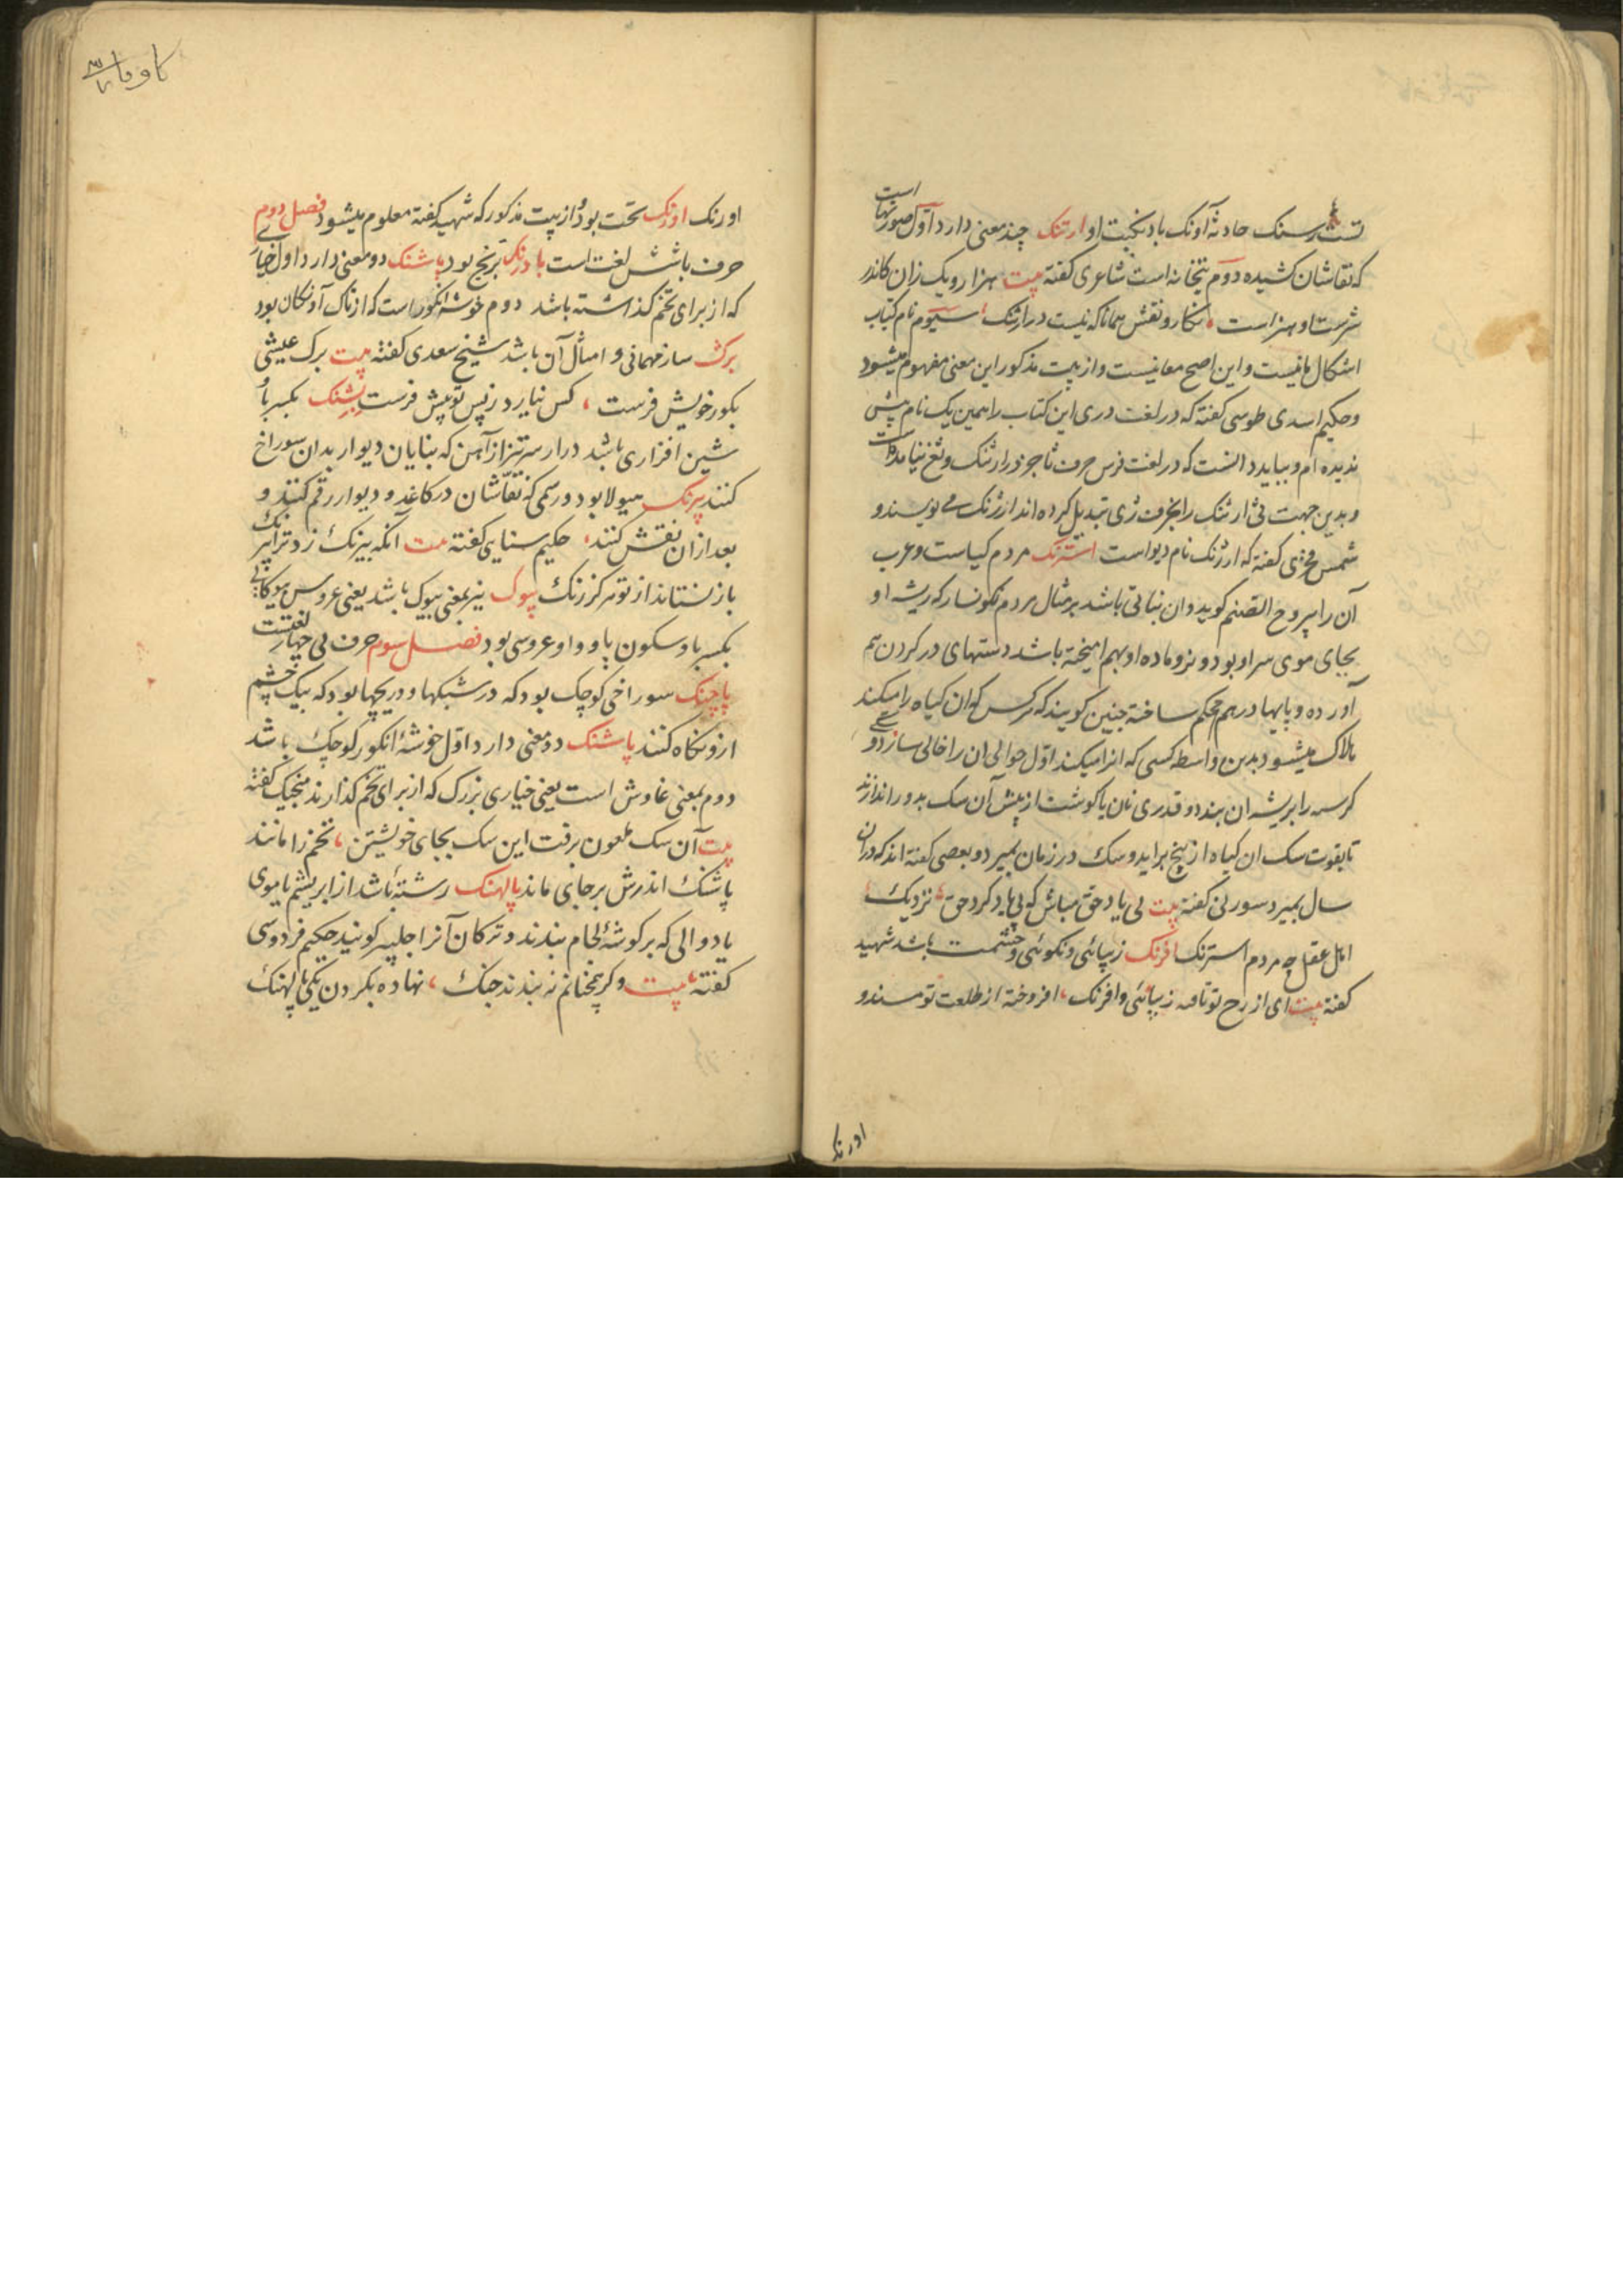 تست سنک حادثه آونک باد نکبت او ارتنک چند معنی دارد اول صورتهاست
که نقاشان کشیده دوم بتخانه است شاعری کفته بیت هزار و یک زان کاندر
سرشت او هنر است نکار و نقش همانا که نیست در ارتنک سیوم نام کتاب
اشکال مانیست و این اصح معانیست و از بیت مذکور این معنی مفهوم میشود
و حکیم اسدی طوسی کفته که در لغت دری این کتاب را همین یک نام پیش
ندیده ام و بباید دانست که در لغت فرس حرف ثا جز در ارثنک و ثغ نیامده است
و بدین جهت ثی ارثنک را بحرف ژی تبدیل کرده اند ارژنک می نویسند و
شمس فخری کفته که ارژنک نام دیو است استرنک مردم کیاست و عرب
آن را یبروح الصنم کوید و ان نباتی باشد بر مثال مردم نکونسار که ریشه او
بجای موی سر او بود و نر و ماده او بهم امیخته باشد دستهای در کردن هم
آورده و پایها در هم محکم ساخته چنین کویند که هر کس که ان کیاه را میکند
هلاک میشود بدین واسطه کسی که انرا میکند اول حوالی ان را خالی سازد و سکی
کرسنه را بریشه ان بندد و قدری نان یا کوشت از پیش آن سک بدور اندازند
تا بقوت سک ان کیاه از بیخ براید و سک در زمان بمیرد و بعضی کفته اند که در ان
سال بمیرد سوزنی کفته بیت بی یاد حق مباش که بی یاد کرد حق نزدیک
اهل عقل چه مردم چه استرنک افرنک زیبائی و نکوئی و حشمت باشد شهید
کفته بیت ای از رخ تو تافته زیبائی و افرنک افروخته از طلعت تو مسند و
اورنک
کاف فا
اورنک اورنک تخت بود و از بیت مذکور که شهید کفته معلوم میشود فصل دوم
حرف با شش لغت است بادرنک ترنج بود باشنک دو معنی دارد اول خیاری
که از برای تخم کذاشته باشد دوم خوشه انکور است که از تاک آونکان بود
برک ساز مهمانی و امثال آن باشد شیخ سعدی کفته بیت برک عیشی
بکور خویش فرست کس نیارد ز پس تو پیش فرست بشنک بکسر با و
شین افزاری باشد دراز سر تیز از آهن که بنایان دیوار بدان سوراخ
کنند بیرنک هیولا بود و رسمی که نقاشان در کاغد و دیوار رقم کنند و
بعد از ان نقش کنند حکیم سنایی کفته بیت آنکه بیرنک زد ترا بیرنک
باز نستاند از تو هرکز رنک بیوک نیز بمعنی بیوک باشد یعنی عروس بیوکانی
بکسر با و سکون یا و واو عروسی بود فصل سوم حرف پی چهار لغتست
پاچنک سوراخی کوچک بود که در شبکها و دریچها بود که بیک چشم
ازو نکاه کنند پاشنک دو معنی دارد اول خوشهٔ انکور کوچک باشد
دوم بمعنی غاوش است یعنی خیاری بزرک که از برای تخم کذارند منجیک کفته
بیت آن سک ملعون برفت این سک بجای خویشتن تخم را مانند
پاشنک اندرش بر جای ماند پالهنک رشتهٔ باشد از ابریشم یا موی
یا دوالی که بر کوشهٔ لجام بندند و ترکان آنرا جلبر کویند حکیم فردوسی
کفته بیت و کر همچنانم نه بندند جنک نهاده بکردن یکی پالهنک